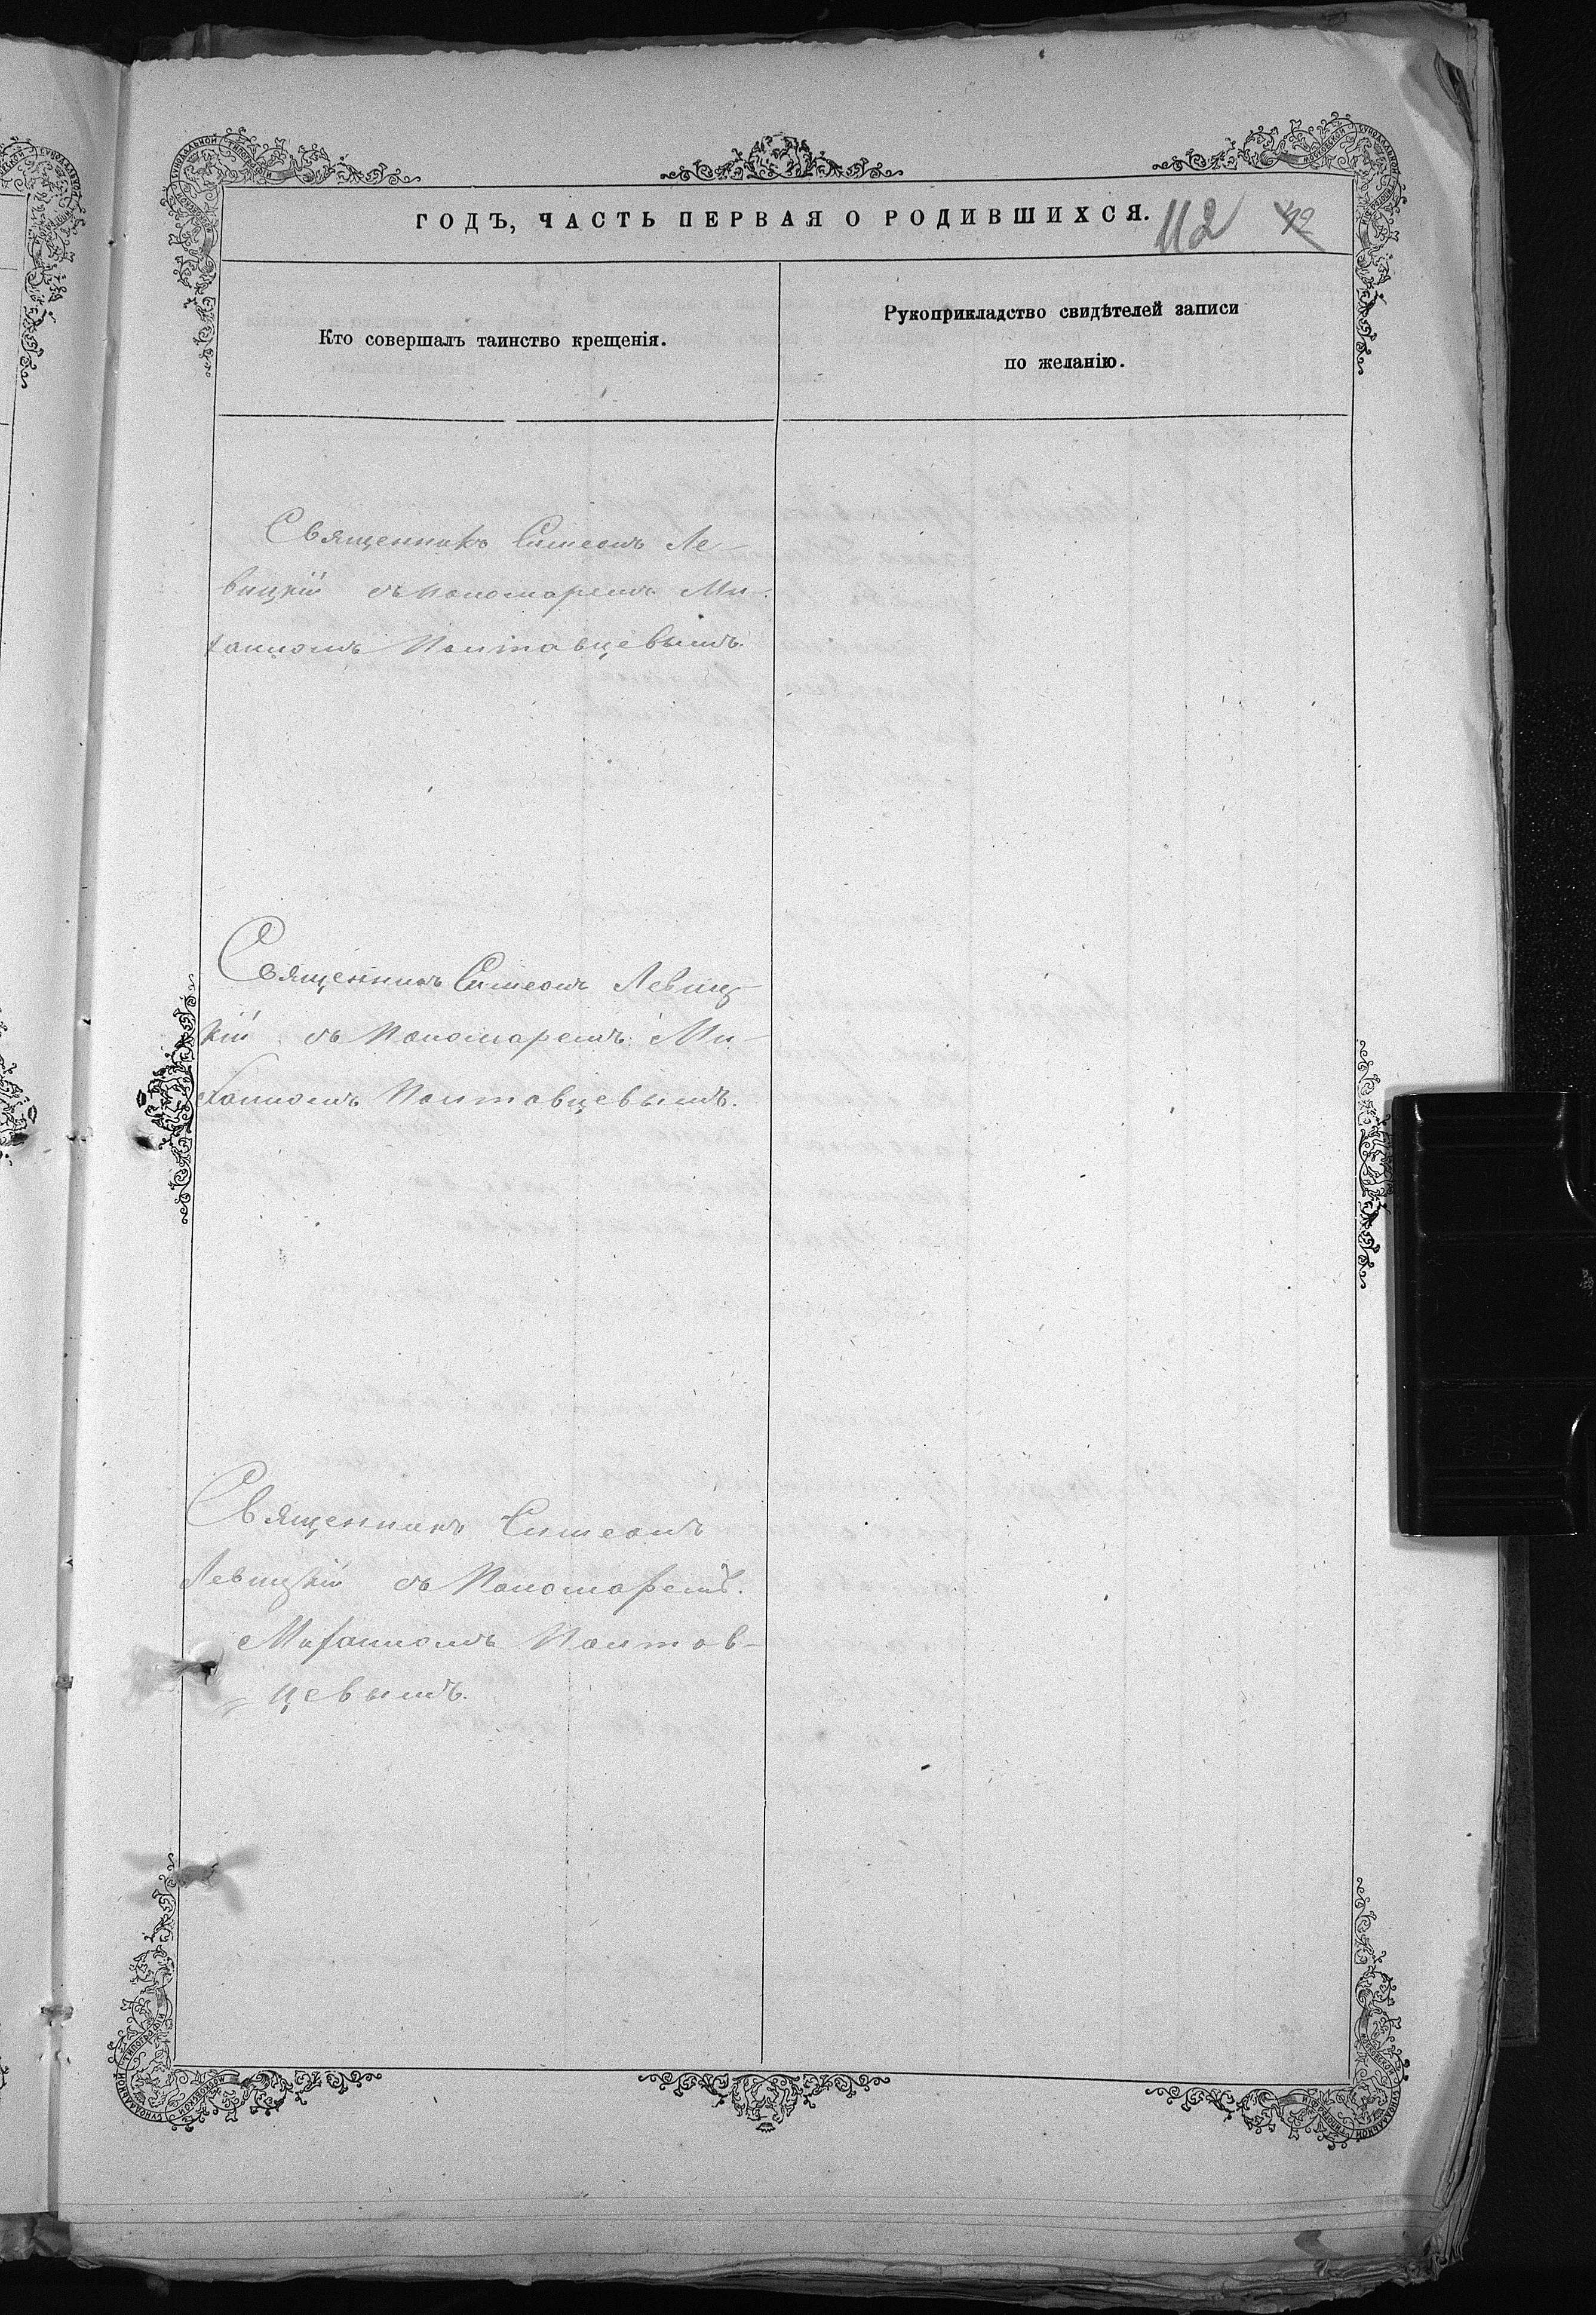 ГОДЪ, ЧАСТЬ ПЕРВАЯ О РОДИВШИХСЯ.
112
Кто совершалъ таинство крещенія.
Рукоприкладство свидѣтелей записи
по желанію.
Священникъ Симеонъ Ле-
вицкій съ пономаремъ Ми-
хаиломъ Полтавцевымъ.
Священникъ Симеонъ Левиц-
кій съ Пономаремъ Ми-
хаиломъ Полтавцевымъ.
Священникъ Симеонъ
Левицкій съ Пономаремъ.
Михаиломъ Полтав-
цевымъ.